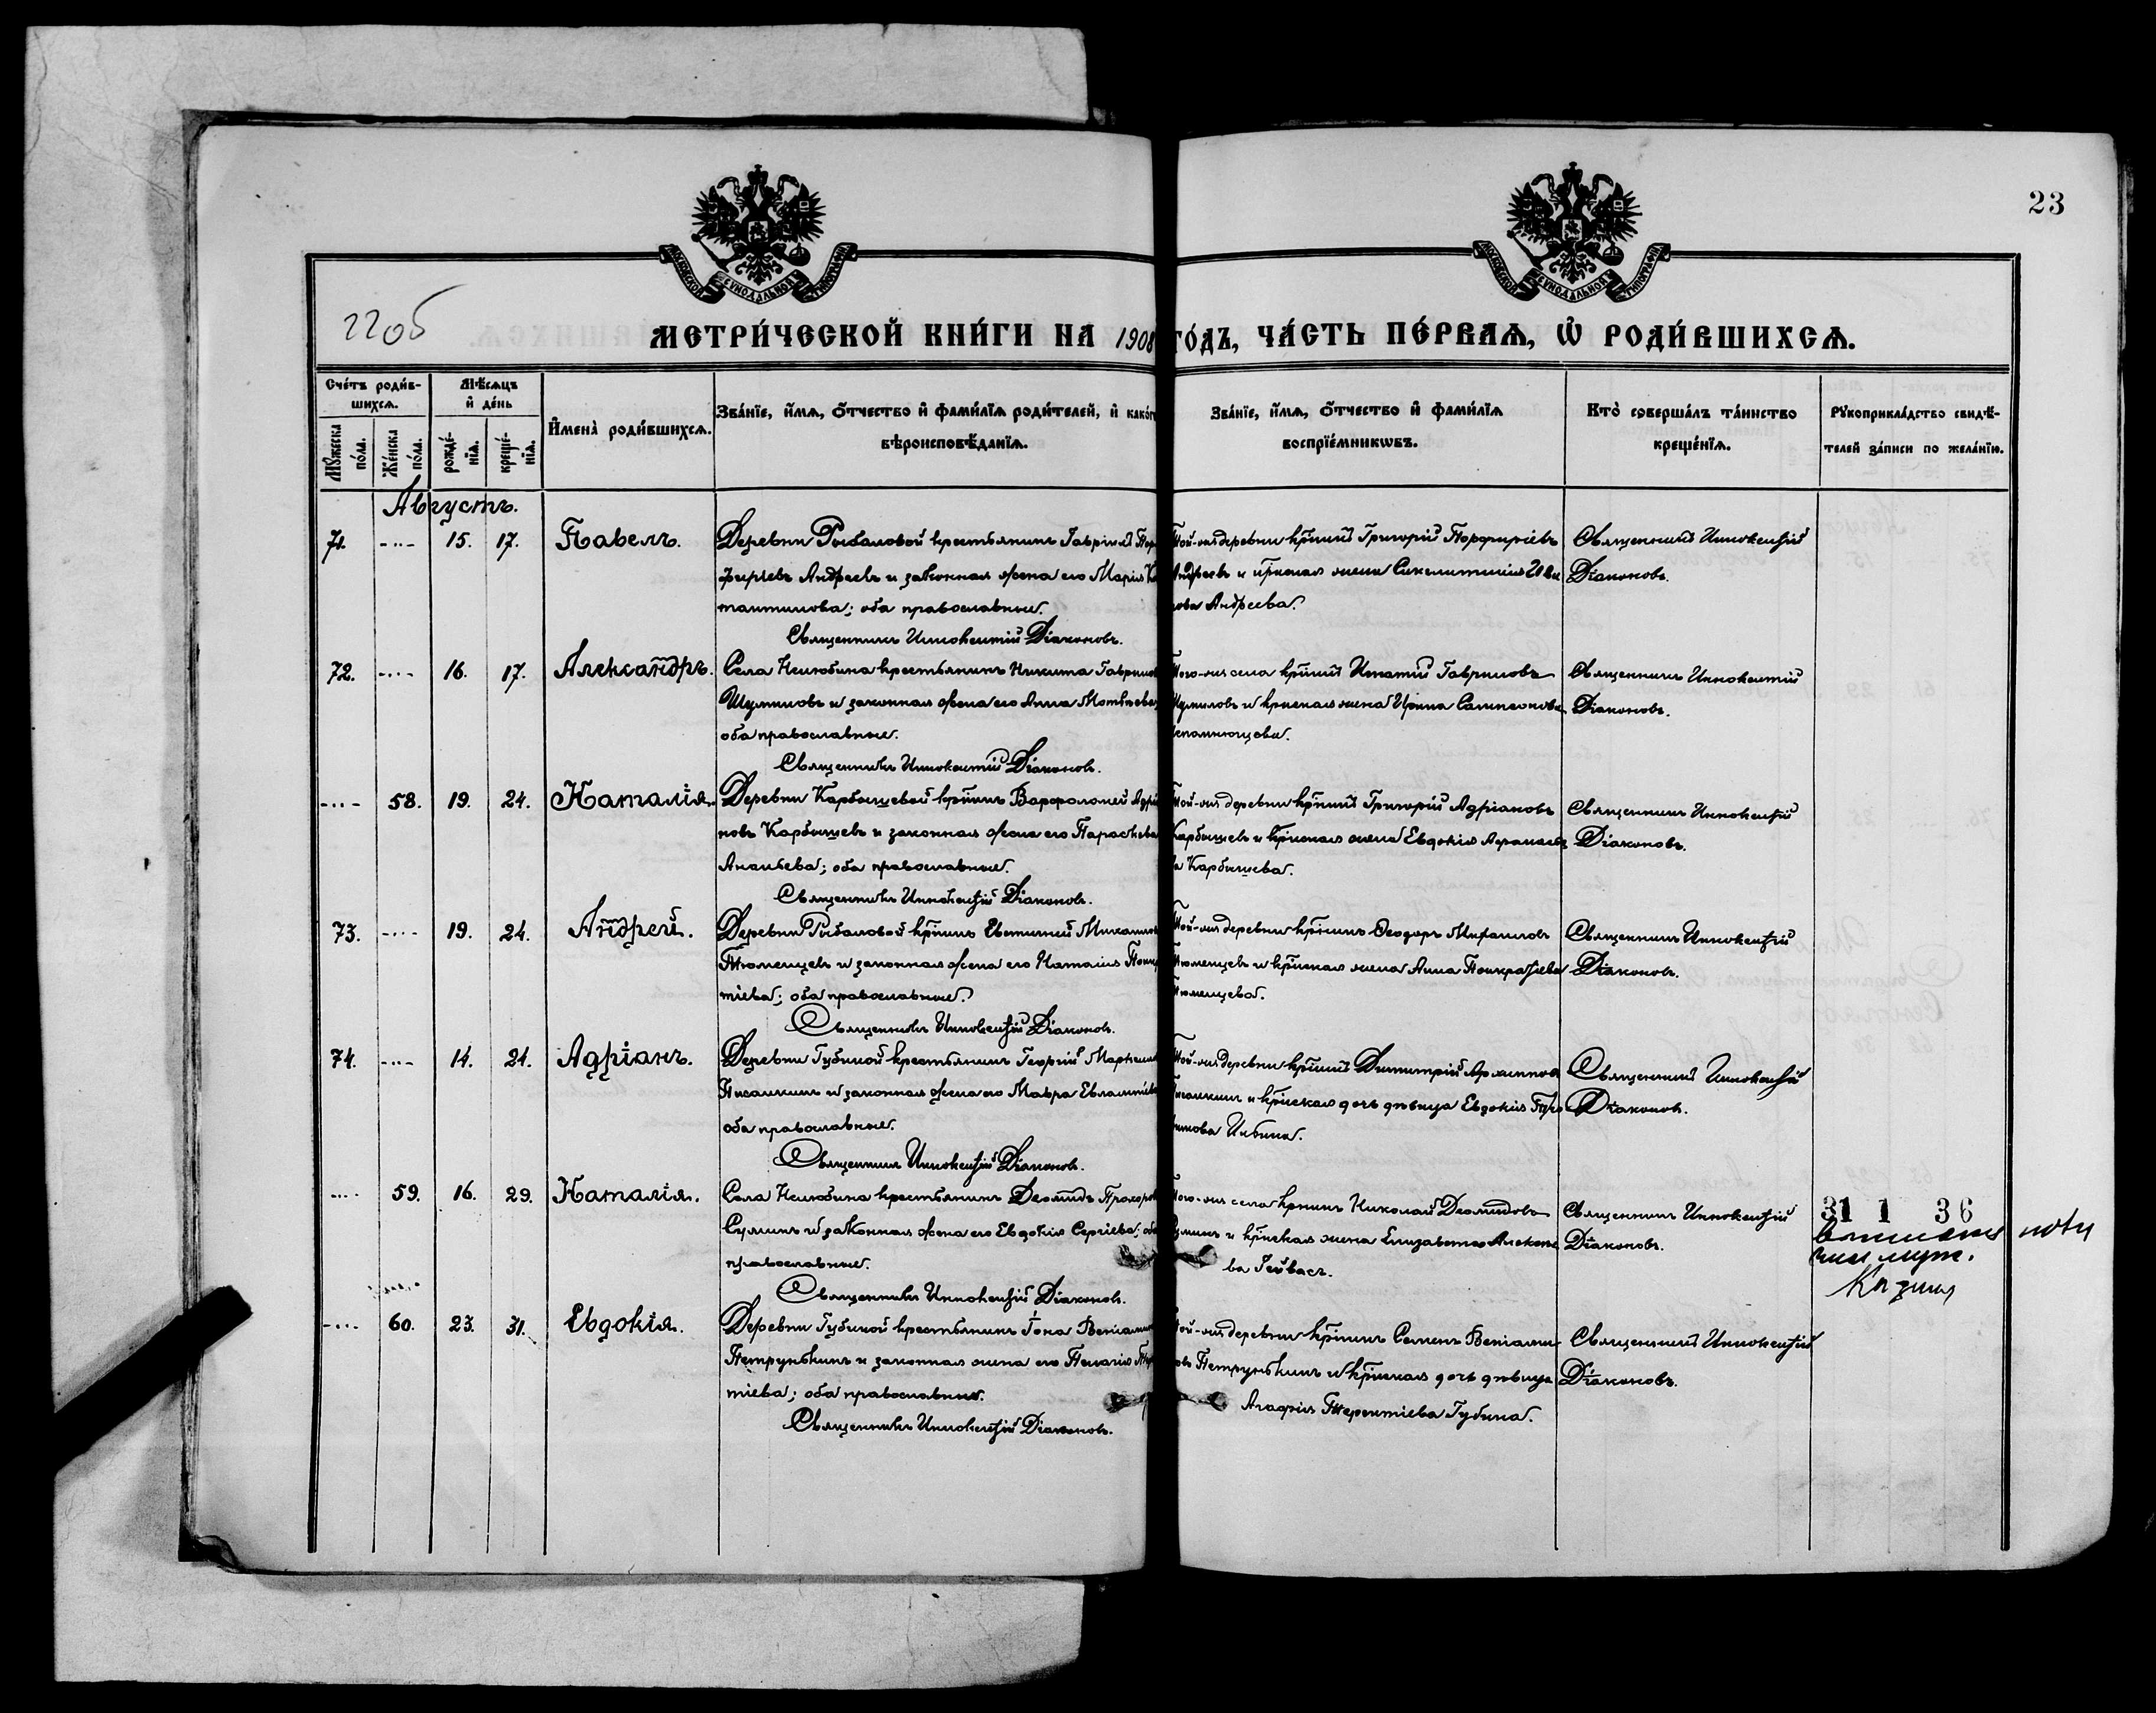 23
22об
МОСКОВСКОЙ СѴНОДАЛЬНОЙ ТИПОГРАФІИ
МОСКОВСКОЙ СѴНОДАЛЬНОЙ ТИПОГРАФІИ
МЕТРИ́ЧЕСКОЙ КНИ́ГИ НА 1908 ГО́ДЪ, ЧА́СТЬ ПЕ́РВАѦ, Ѡ҆ РОДИ́ВШИХСѦ.
Сче́тъ роди́в-
шихсѧ.
Мꙋжеска по́ла.
Же́нска по́ла.
Мѣ́сѧцъ
и҆ де́нь
рожде́-
нїѧ.
креще́-
нїѧ.
И҆мена̀ роди́вшихсѧ.
Зва́нїе, и҆́мѧ, ѻ҆́тчество и҆ фами́лїѧ роди́телей, и҆ како́гѡ
вѣроисповѣ́данїѧ.
Зва́нїе, и҆́мѧ, ѻ҆́тчество и҆ фами́лїѧ
воспрїе́мникѡвъ.
Кто̀ соверша́лъ та́инство
креще́нїѧ.
Рꙋкоприкла́дство свидѣ́-
телей за́писи по жела́нїю.
Августъ.
71. 15. 17. Павелъ.
Деревни Рыбаловой крестьянинъ Гавріилъ Пор
фирьевъ Андреевъ и законная жена его Марія Ко
тантинова; оба православные.
Священникъ Иннокентій Діаконовъ.
Той-же деревни Григорій Порфирьевъ
Андреевъ и жена Синклитикія
Андреева.
Священникъ Иннокентій
Діаконовъ.
72. 16. 17. Александръ.
Села Нелюбина крестьянинъ Никита Гаврилов
Шумиловъ и законная жена его Анна Матвѣева
оба православные.
Священникъ Иннокентій Діаконовъ.
Того-же села Ипатій Гавриловъ
Шумиловъ и жена Ирина Сампсонова
Непомнющева.
Священникъ Иннокентій
Діаконовъ.
58. 19. 24. Наталія.
Деревни Карбышевой кр̄нинъ Варфоломей Адріа
новъ Карбышевъ и законная жена его Параскева
Ананьева; оба православные.
Священникъ Иннокентій Діаконовъ.
Той-же деревни Григорій Адріановъ
Карбышевъ и жена Евдокія
Карбышева.
Священникъ Иннокентій
Діаконовъ.
73. 19. 24. Андрей.
Деревни Рыбаловой кр̄нинъ Евтихій Михаилов
Тюменцевъ и законная жена его Наталія Панкр
тіева; оба православные.
Священникъ Иннокентій Діаконовъ.
Той-же деревни Ѳеодоръ Михаиловъ
Тюменцевъ и жена Анна Панкратіева
Тюменцева.
Священникъ Иннокентій
Діаконовъ.
74. 14. 24. Адріанъ.
Деревни Губиной крестьянинъ Георгій
и законная жена его Мавра Евлампіева
оба православные.
Священникъ Иннокентій Діаконовъ.
Той-же деревни Димитрій Архиппов
и дочь дѣвица Евдокія
Священникъ Иннокентій
Діаконовъ.
59. 16. 29. Наталія.
Села Нелюбина крестьянинъ Діомидъ Прохоров
Сулинъ и законная жена его Евдокія Сергіева; оба
православные.
Священникъ Иннокентій Діаконовъ.
Того-же села Николай Діомидовъ
Сулинъ и жена Елизавета Алексѣе
ва
Священникъ Иннокентій
Діаконовъ.
31 1 36
60. 23. 31. Евдокія.
Деревни Губиной крестьянинъ Іона Веніамин
Петрунькинъ и законная жена его Пелагія
тіева; оба православные.
Священникъ Иннокентій Діаконовъ.
Той-же деревни Семенъ Веніамин
овъ Петрунькинъ и дочь дѣвица
Агафія Терентіева Губина.
Священникъ Иннокентій
Діаконовъ.